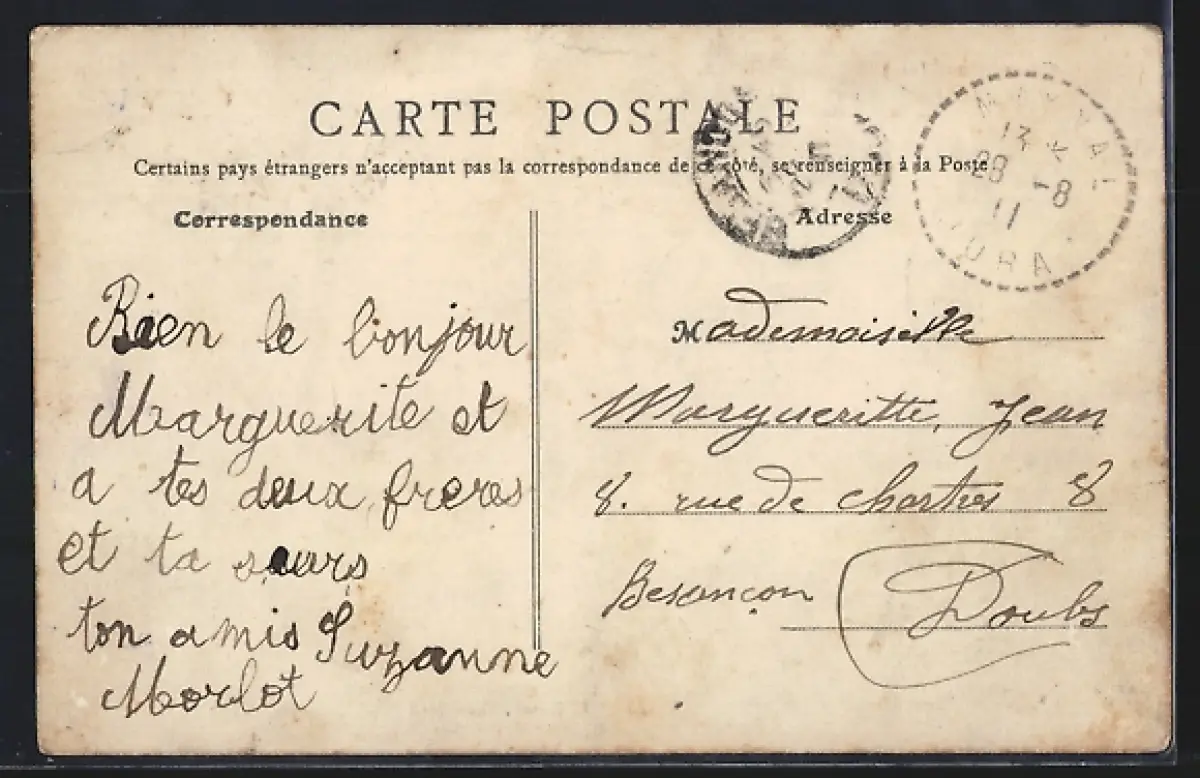 CARTE POSTALE
Certains pays étrangers n'acceptant pas la correspondance de ce côté, se renseigner à la Poste
Correspondance
Bien le bonjour
Marguerite et
a tes deux freres
et ta sœurs
ton amis Suzanne
Morlot
Adresse
Mademoiselle
Margueritte, Jean
8. rue de Chartres 8
Besançon
Doubs
13
28 -8
11
JURA